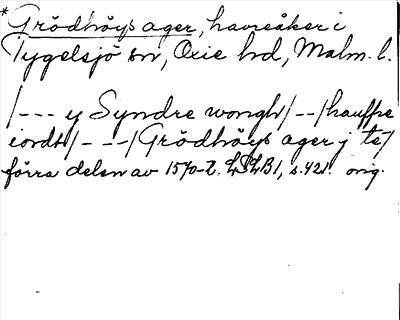 *Grödhöys ager, havreåker i
Tygelsjö sn, Oxie hd, Malm. l.
/--- y Syndre wongh/--/hauffre
iordt/---/Grödhöys ager j té/
förra delen av 1570-t. LSLB1, s. 421. orig.